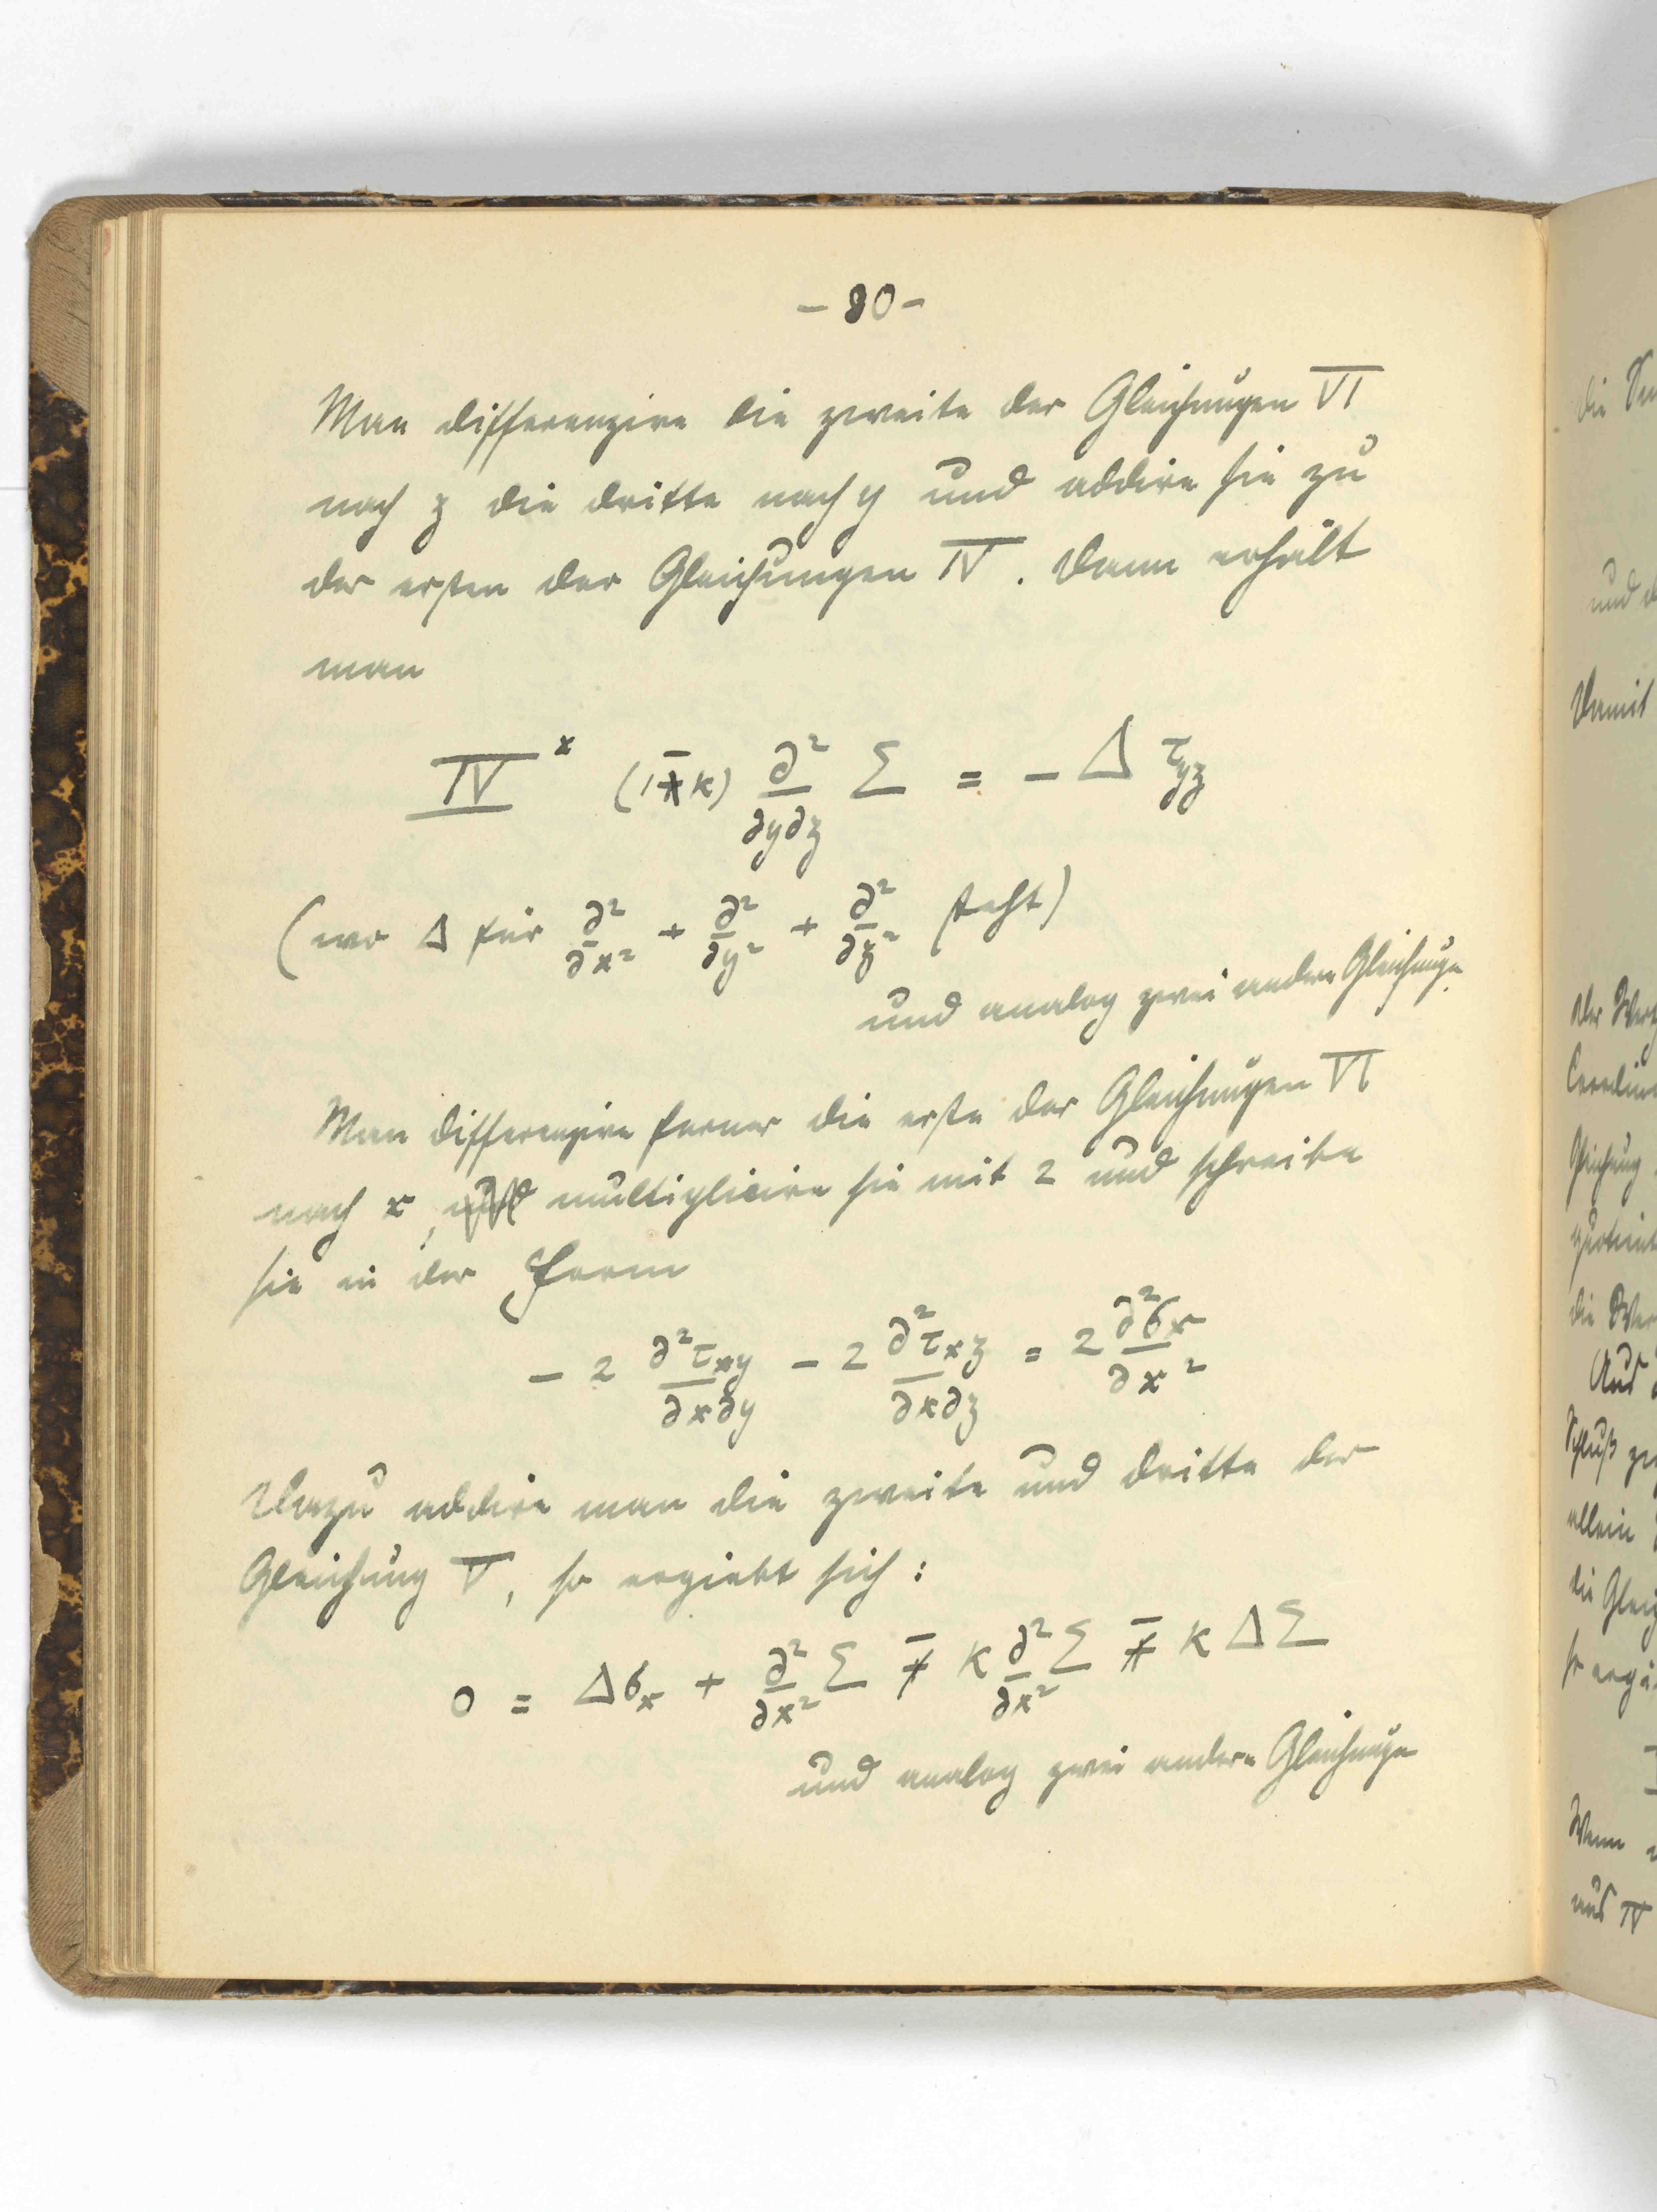 – 80 –
Man differenzire die zweite der Gleichungen VI
nach z die dritte nach y und addire sie zu
der ersten der Gleichungen IV. Dann erhält
man
IV* (1 – κ) ∂²/∂y∂z Σ = – Δ τyz
(wo Δ für ∂²/∂x² + ∂²/∂y² + ∂²/∂z² steht)
und analog zwei andere Gleichungen
Man differenzire ferner die erste der Gleichungen VI
nach x, multiplicire sie mit 2 und schreibe
sie in der Form
– 2 ∂²τxy/∂x∂y – 2 ∂²τxz/∂x∂z = 2 ∂²σx/∂x²
Dazu addire man die zweite und dritte der
Gleichung V, so ergiebt sich:
0 = Δσx + ∂²/∂x² Σ – κ ∂²/∂x² Σ – κ Δ Σ
und analog zwei andere Gleichungen
die
und
Damit
Der
Gleichung
die
Aus
Schluß
allein
die
so
Wenn
aus IV